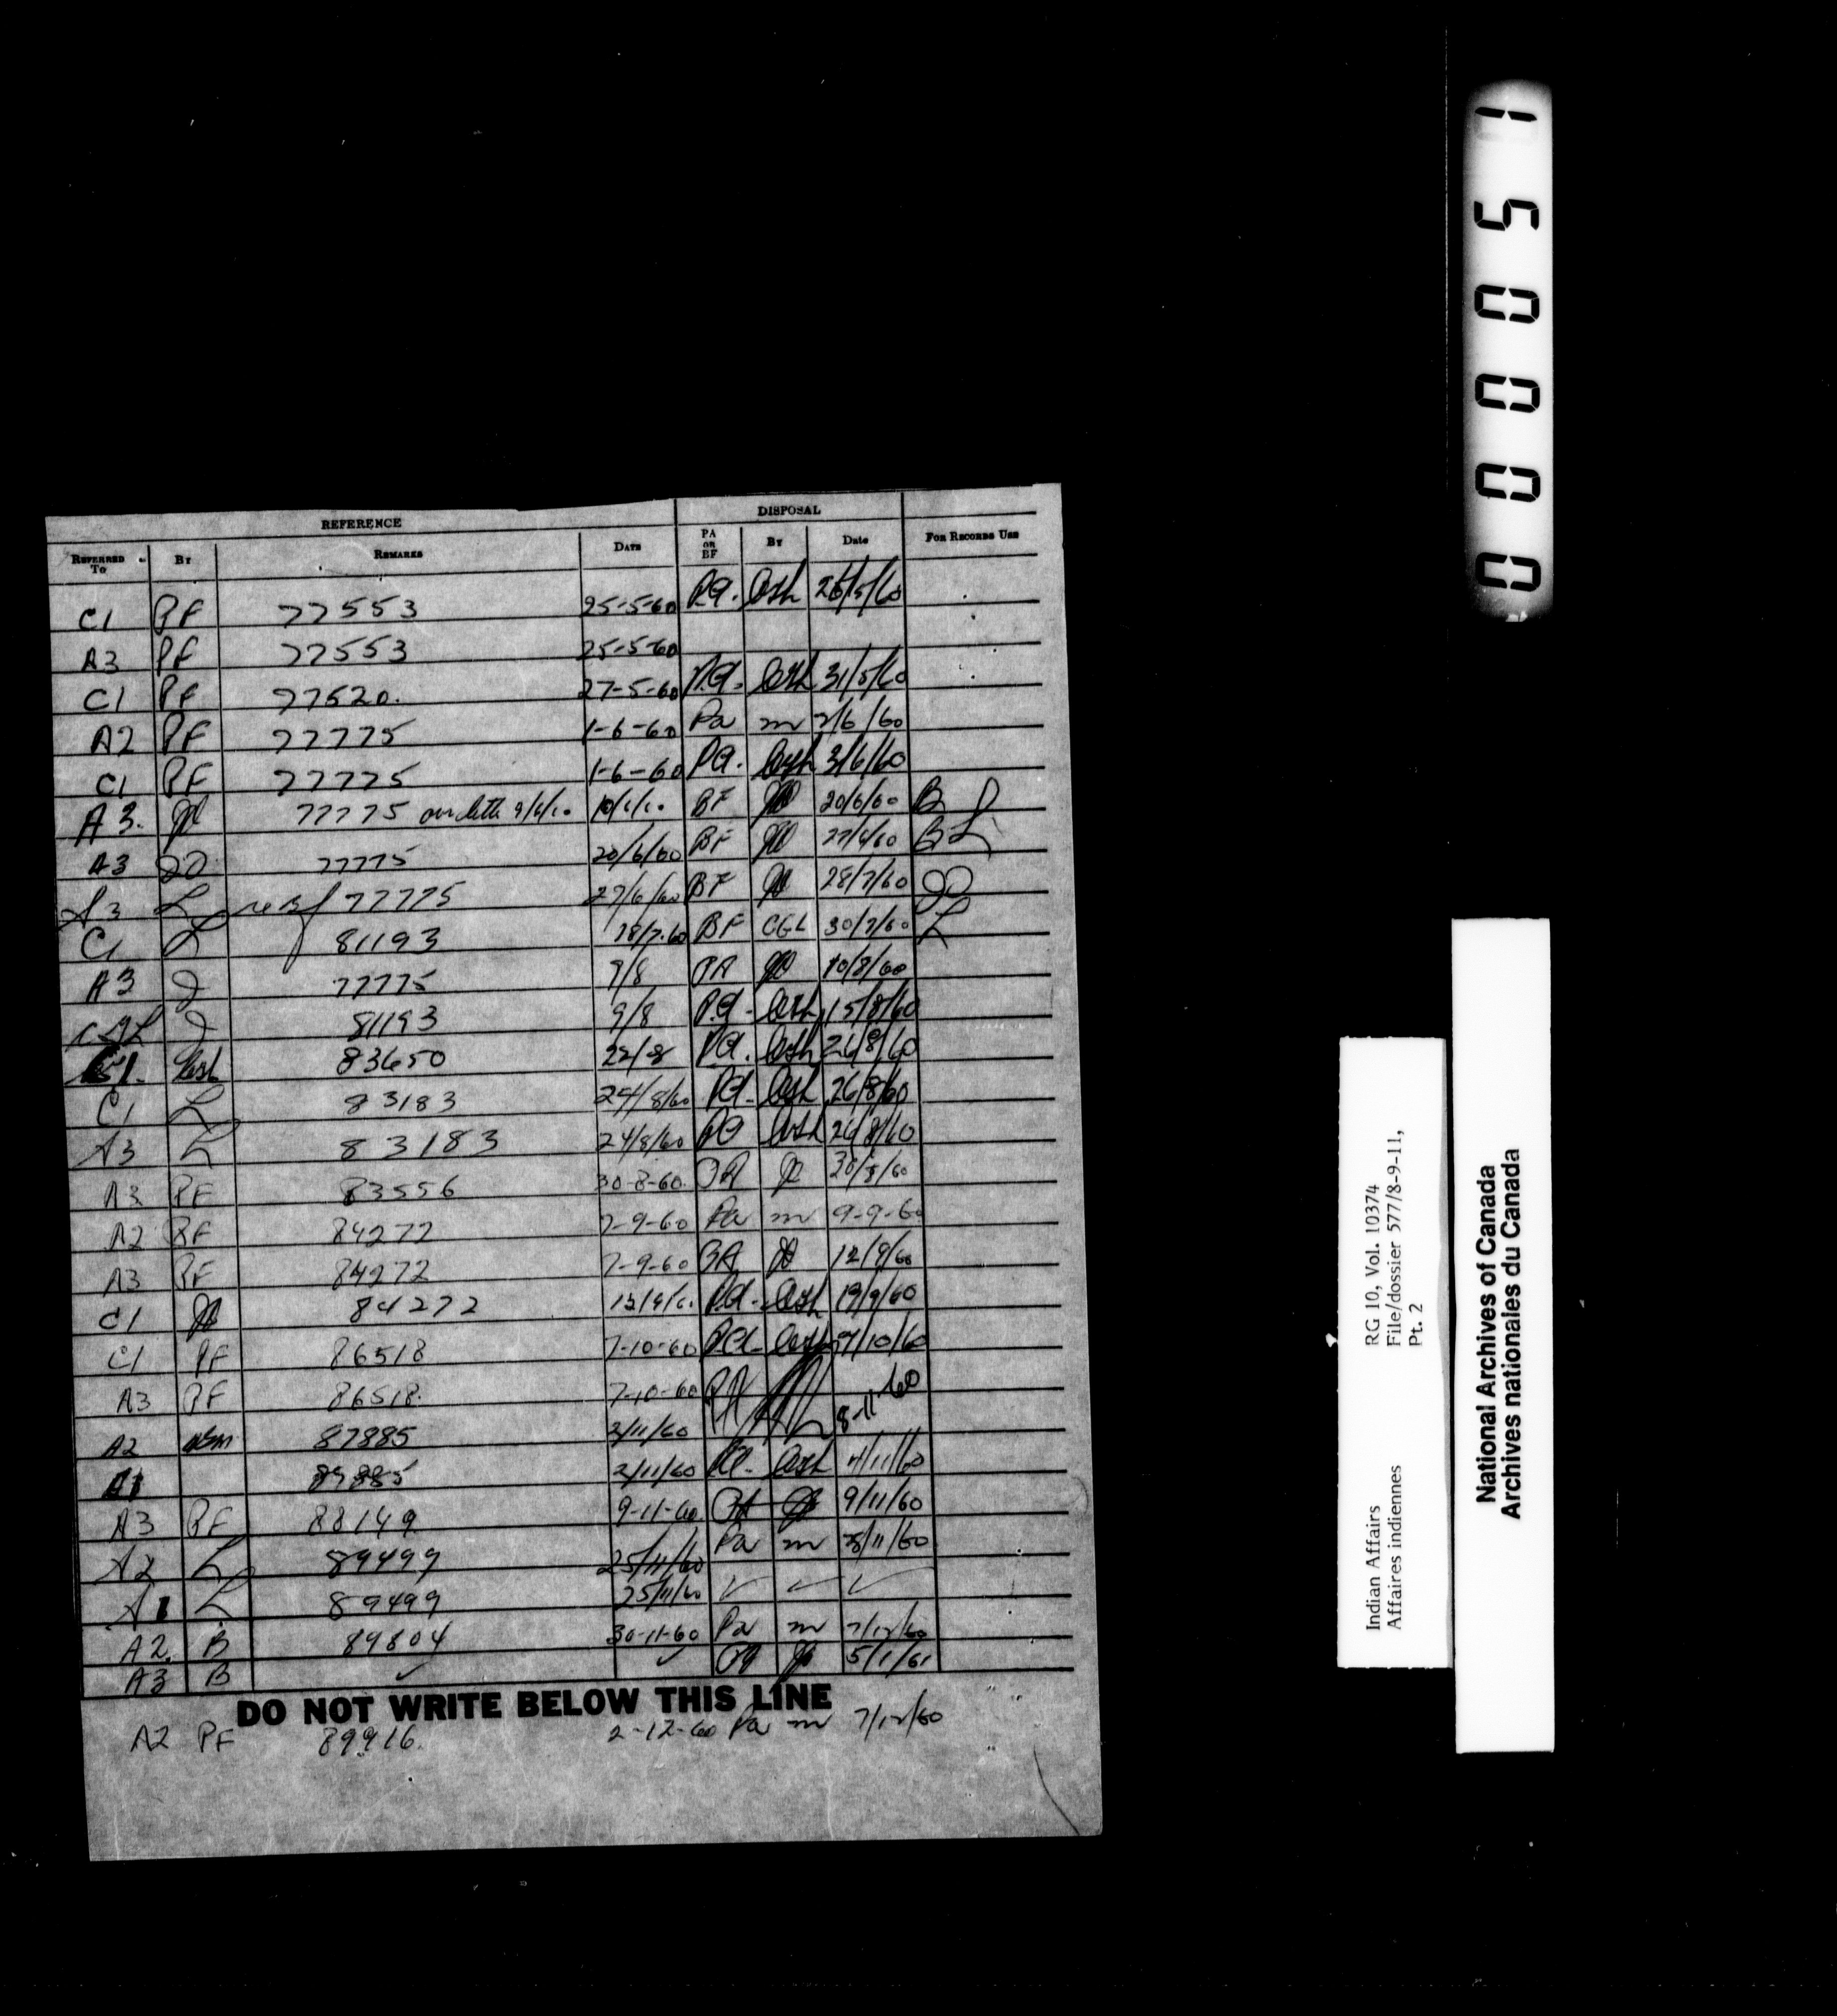 REFERENCE DISPOSAL
REFERRED TO BY REMARKS DATE PA OR BF BY Date FOR RECORDS USE
C1 PF 77553 25-5-60 P.A. 26/5/60
A3 PF 77553 25-5-60
C1 PF 77520. 27-5-60 P.A. 31/5/60
A2 PF 77775 1-6-60 Pa m 2/6/60
C1 PF 77775 1-6-60 P.A. 3/6/60
A3. 77775 our 9/6/60 BF 20/6/60 B
A3 77775 20/6/60 BF 27/6/60 B L
A3 L 77775 27/6/60 BF 28/7/60
C1 L 81193 28/7.60 BF CGL 30/7/60 L
A3 77775 9/8 PA 10/8/60
CGL 81193 9/8 P.A. 15/8/60
C1. 83650 22/8 P.A. 26/8/60
C1 L 83183 24/8/60 P.A. 26/8/60
A3 L 83183 24/8/60 PA 26/8/60
A3 PF 83556 30-8-60. PA 30/8/60
A2 PF 84272 7-9-60 Pa m 9-9-60
A3 PF 84272 7-9-60 PA 12/9/60
C1 84272 12/9/60 P.A. 19/9/60
C1 PF 86518 7-10-60 P.A. /10/60
A3 PF 86518. 7-10-60 PA 8-11-60
A2 87885 2/11/60
A1 2/11/60 PA. 4/11/60
A3 PF 88149 9-11-60 PA 9/11/60
A2 L 89499 25/11/60 Pa m 28/11/60
A1 L 89499 25/11/60 ✓ ✓ ✓
A2. B 89804 30-11-60 Pa m 7/12/60
A3 B ✓ ✓ PA 5/1/61
DO NOT WRITE BELOW THIS LINE
A2 PF 89916. 2-12-60 Pa m 7/12/60
000051
Indian Affairs RG 10, Vol. 10374
Affaires indiennes File/dossier 577/8-9-11,
Pt. 2
National Archives of Canada
Archives nationales du Canada